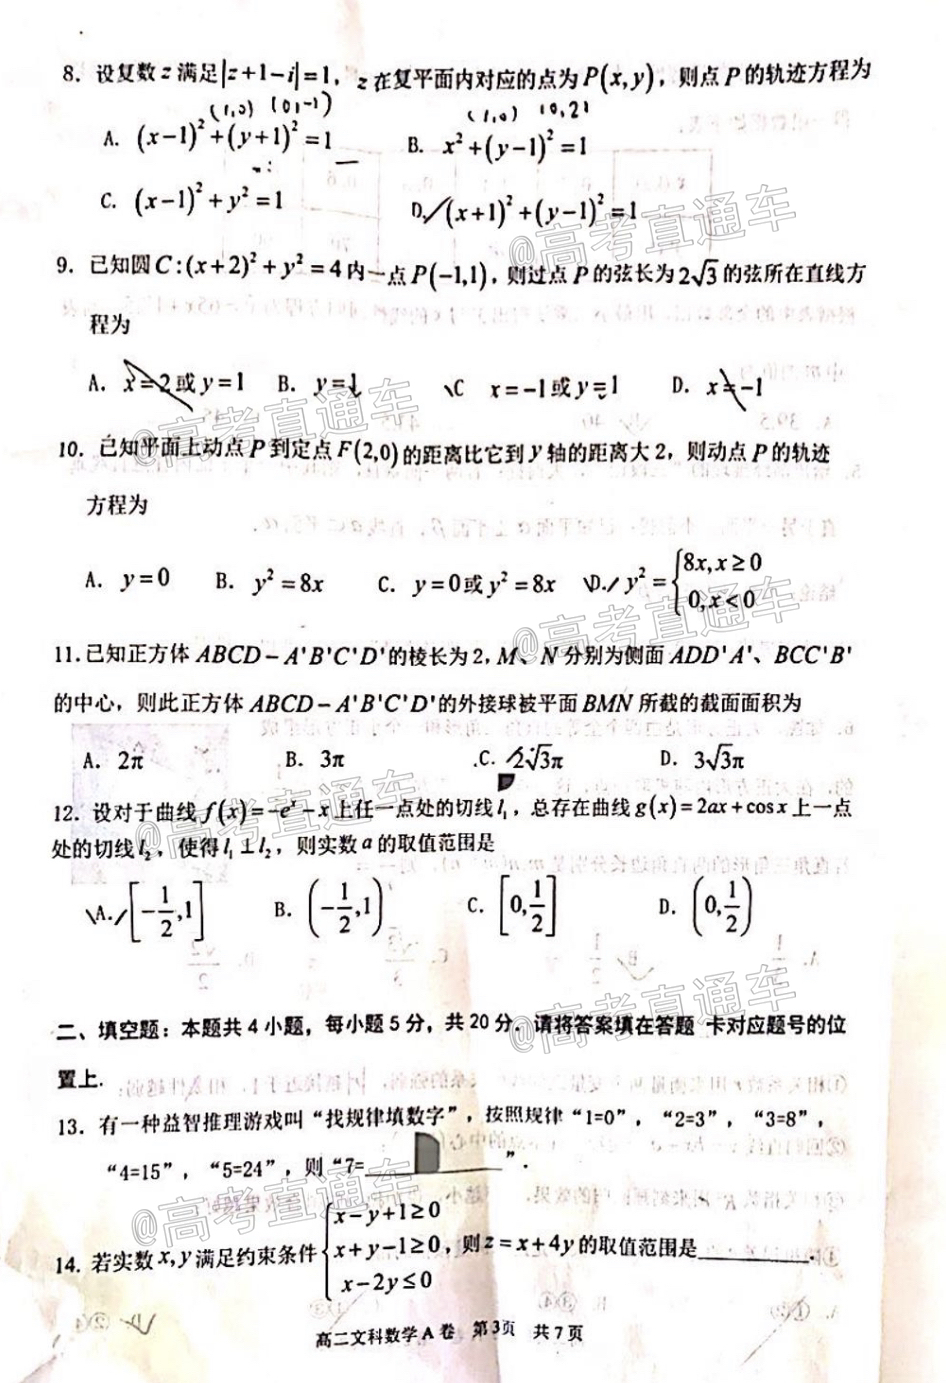 8. 设复数 z 满足|z+1−i|=1, z 在复平面内对应的点为 P(x,y), 则点 P 的轨迹方程为
(1,0) (0,-1) (1,0) (0,2)
A. (x−1)²+(y+1)²=1 B. x²+(y−1)²=1
C. (x−1)²+y²=1 D. (x+1)²+(y−1)²=1
9. 已知圆 C:(x+2)²+y²=4 内一点 P(−1,1), 则过点 P 的弦长为 2√3 的弦所在直线方
程为
A. x=2或 y=1 B. y=1 C x=−1或 y=1 D. x=−1
10. 已知平面上动点 P 到定点 F(2,0) 的距离比它到 y 轴的距离大 2, 则动点 P 的轨迹
方程为
A. y=0 B. y²=8x C. y=0或 y²=8x D. y²={8x,x≥0
0,x<0
11.已知正方体 ABCD−A'B'C'D'的棱长为 2, M、N 分别为侧面 ADD'A'、BCC'B'
的中心, 则此正方体 ABCD−A'B'C'D'的外接球被平面 BMN 所截的截面面积为
A. 2π B. 3π C. 2√3π D. 3√3π
12. 设对于曲线 f(x)=−eˣ−x上任一点处的切线 l₁, 总存在曲线 g(x)=2ax+cosx 上一点
处的切线 l₂, 使得 l₁⊥l₂, 则实数 a 的取值范围是
A. [−1/2,1] B. (−1/2,1) C. [0,1/2] D. (0,1/2)
二、填空题：本题共 4 小题，每小题 5 分，共 20 分. 请将答案填在答题 卡对应题号的位
置上.
13. 有一种益智推理游戏叫“找规律填数字”, 按照规律“1=0”, “2=3”, “3=8”,
“4=15”, “5=24”, 则“7=______”.
14. 若实数 x,y 满足约束条件{x−y+1≥0
x+y−1≥0, 则 z=x+4y 的取值范围是______.
x−2y≤0
高二文科数学 A 卷 第 3页 共 7 页
@高考直通车
@高考直通车
@高考直通车
@高考直通车
@高考直通车
@高考直通车